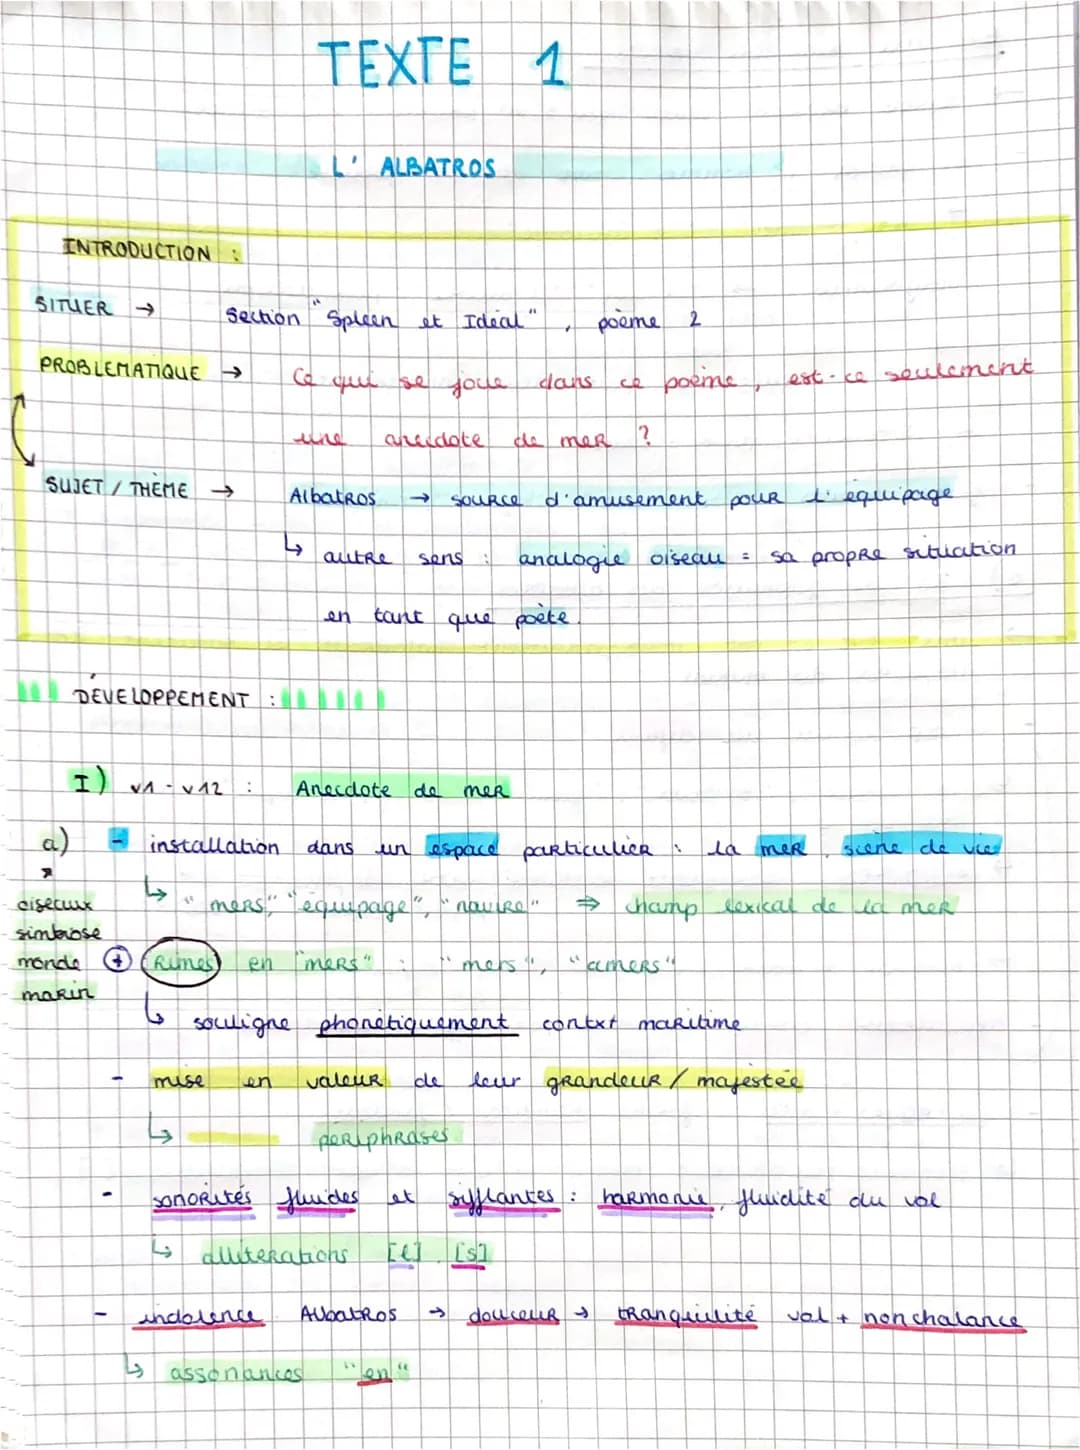 TEXTE 1
L' ALBATROS
INTRODUCTION :
SITUER → Section "Spleen et Idéal", poème 2
PROBLEMATIQUE → Ce qui se joue dans ce poème, est-ce seulement
une anecdote de mer ?
SUJET / THÈME → Albatros → source d'amusement pour l'équipage
↳ autre sens : analogie oiseau = sa propre situation
en tant que poète.
DÉVELOPPEMENT :
I) v1 - v12 : Anecdote de mer
a) - installation dans un espace particulier : la mer, scène de vie
↳ "mers", "équipage", "navire" ⇒ champ lexical de la mer
oiseaux
simbiose
monde
marin
+ Rimes en "mers" : "mers", "amers"
↳ souligne phonétiquement contxt maritime
- mise en valeur de leur grandeur / majestée
↳ périphrases
- sonorités fluides et sifflantes : harmonie, fluidité du vol
↳ allitérations [l], [s]
- indolence Albatros → douceur → tranquilité vol + nonchalance
↳ assonances "en"